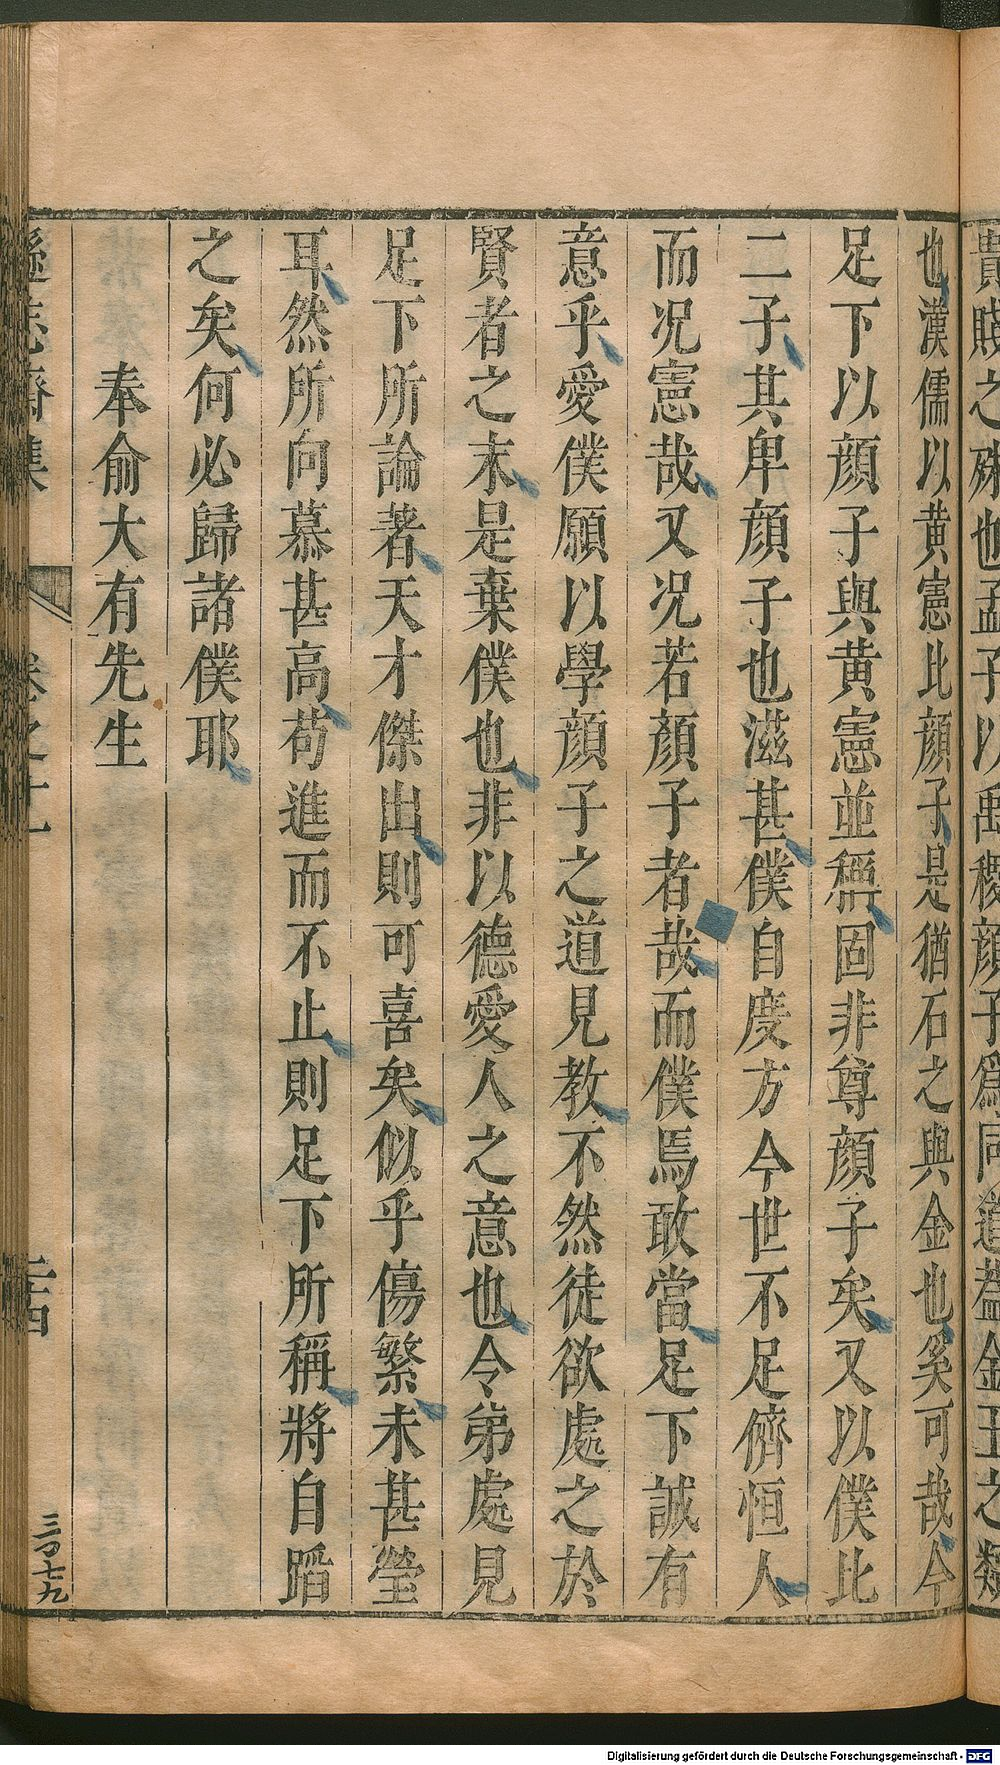 貴賤之殊也孟子以禹稷顔子爲同道葢金玉之類
也漢儒以黄憲比顔子是猶石之與金也奚可哉今
足下以顔子與黄憲並稱固非尊顔子矣又以僕比
二子其卑顔子也滋甚僕自度方今世不足儕恒人
而况憲哉又况若顔子者哉而僕焉敢當足下誠有
意乎愛僕願以學顔子之道見教不然徒欲處之於
賢者之末是棄僕也非以德愛人之意也令弟處見
足下所論著天才傑出則可喜矣似乎傷繁未甚瑩
耳然所向慕甚高苟進而不止則足下所稱將自蹈
之矣何必歸諸僕耶
奉俞大有先生
遜志齋集
卷之十一
二十四
三百七九
Digitalisierung gefördert durch die Deutsche Forschungsgemeinschaft - DFG